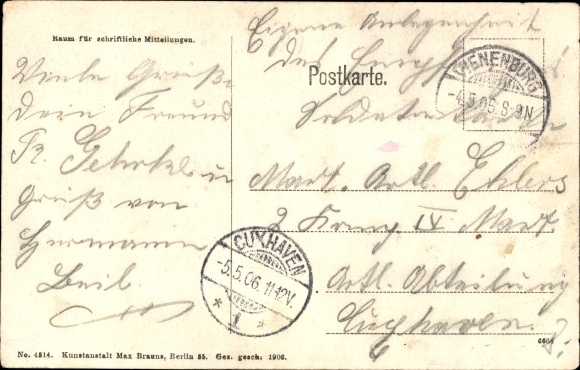 Raum für schriftliche Mitteilungen.
Viele Grüße
dein Freund
Fr. Gehrke u
Gruß von
Hermann
Beil.
Postkarte.
Eigene Angelegenheit
des Empfängers
Soldatenkarte
Matr. Artl. Ehlers
2 Komp IV Matr.
Artl. Abteilung
Cuxhaven.
THENENBURG
-4.5.06.8-9N
CUXHAVEN
-5.5.06.11-12V.
* 1 *
No. 4514. Kunstanstalt Max Brauns, Berlin 55. Ges. gesch. 1906.
6664